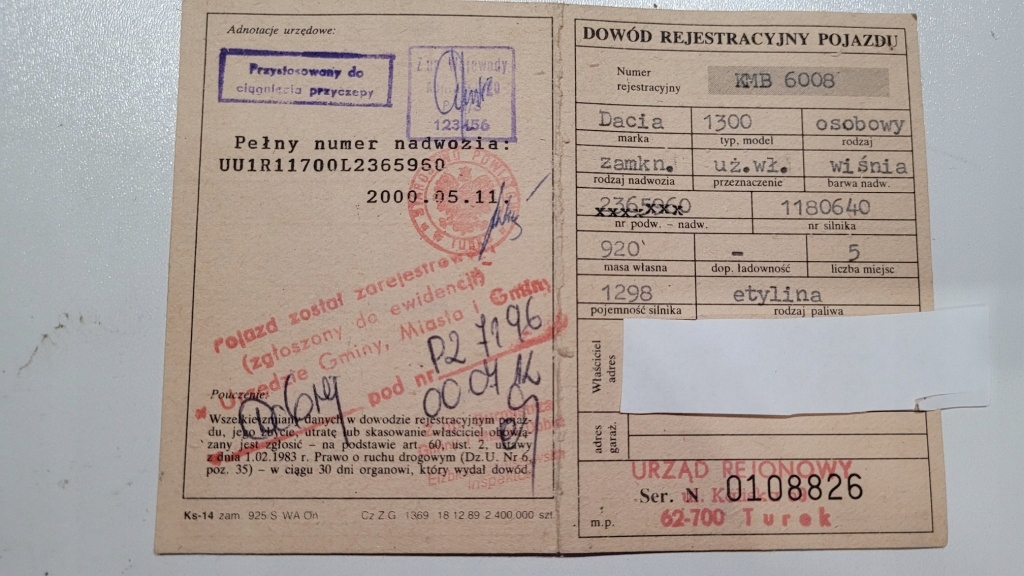 Adnotacje urzędowe:
Przystosowany do
ciągnięcia przyczepy
123456
Pełny numer nadwozia:
UU1R11700L2365960
2000.05.11.
Pojazd został zarejestrowany
(zgłoszony do ewidencji)
w Urzędzie Gminy, Miasta i Gminy
pod nr
Pouczenie:
Wszelkie zmiany danych w dowodzie rejestracyjnym pojaz-
du, jego zbycie, utratę lub skasowanie właściciel obowią-
zany jest zgłosić – na podstawie art. 60, ust. 2, ustawy
z dnia 1.02.1983 r. Prawo o ruchu drogowym (Dz.U. Nr 6,
poz. 35) – w ciągu 30 dni organowi, który wydał dowód.
Ks-14 zam. 925 S WA On. Cz Z.G. 1369 18.12.89 2.400.000 szt.
DOWÓD REJESTRACYJNY POJAZDU
Numer
rejestracyjny
KMB 6008
Dacia 1300 osobowy
marka typ, model rodzaj
zamkn. uż.wł. wiśnia
rodzaj nadwozia przeznaczenie barwa nadw.
1180640
nr podw. – nadw. nr silnika
920 – 5
masa własna dop. ładowność liczba miejsc
1298 etylina
pojemność silnika rodzaj paliwa
Właściciel
adres
adres
garaż.
URZĄD REJONOWY
Ser. N 0108826
m.p.
62-700 Turek